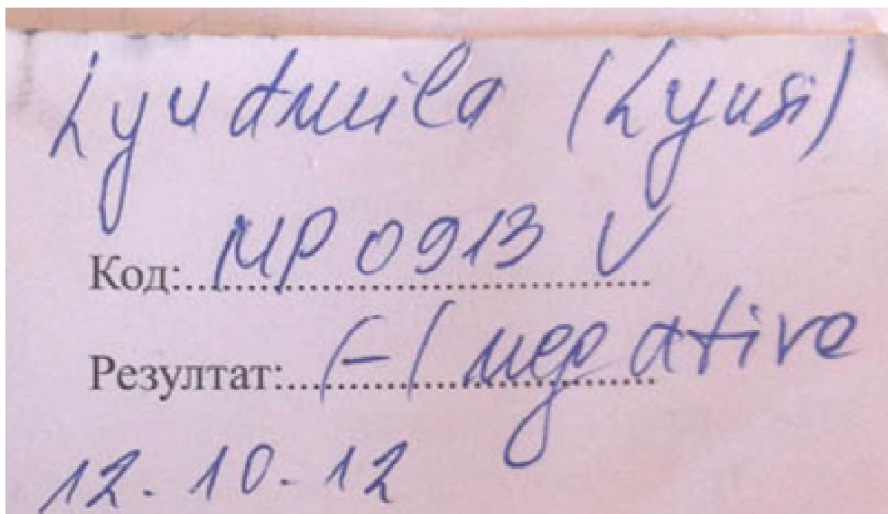 Lyudmila (Lyusi)
Код: MP 0913 V
Резултат: (-) negative
12.10.12